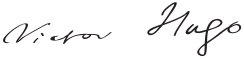 Victor Hugo